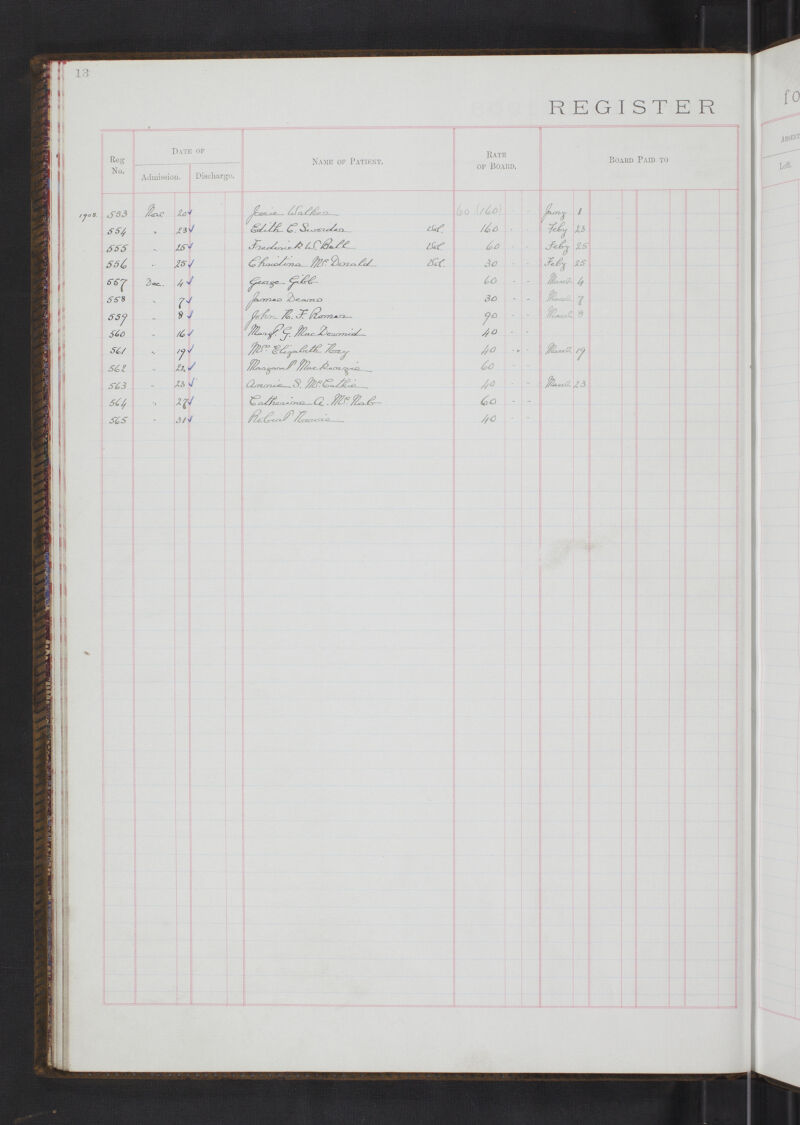 13
REGISTER
fo
Reg No. DATE OF Admission. Discharge. NAME OF PATIENT. RATE OF BOARD. BOARD PAID TO
ABSENT
Left.
1908. 553 20 Jessie Walker 60 (160) - - Jany 1
554 " 23 Edith C. Sworder Vol. 160 - - Feby 23
555 - 25 Frederick W. Bell Vol 60 - - Feby 25
556 - 25 Christina McDonald Vol. 30 - - Feby 25
557 Dec. 4 George Gibb 60 - - March 4
558 - 7 James Deans 30 - - March 7
559 - 8 John F. Roman 90 - - March 8
560 - 16 Margt. G. MacDearmid 40 - -
561 - 19 Mrs Elizabeth 40 - - March 19
562 - 22 Margaret MacKenzie 60 - -
563 - 23 Annie S. McCuthie 40 - - March 23
564 " 27 Catherine A. McNab 60 - -
565 - 31 Robert 40 - -